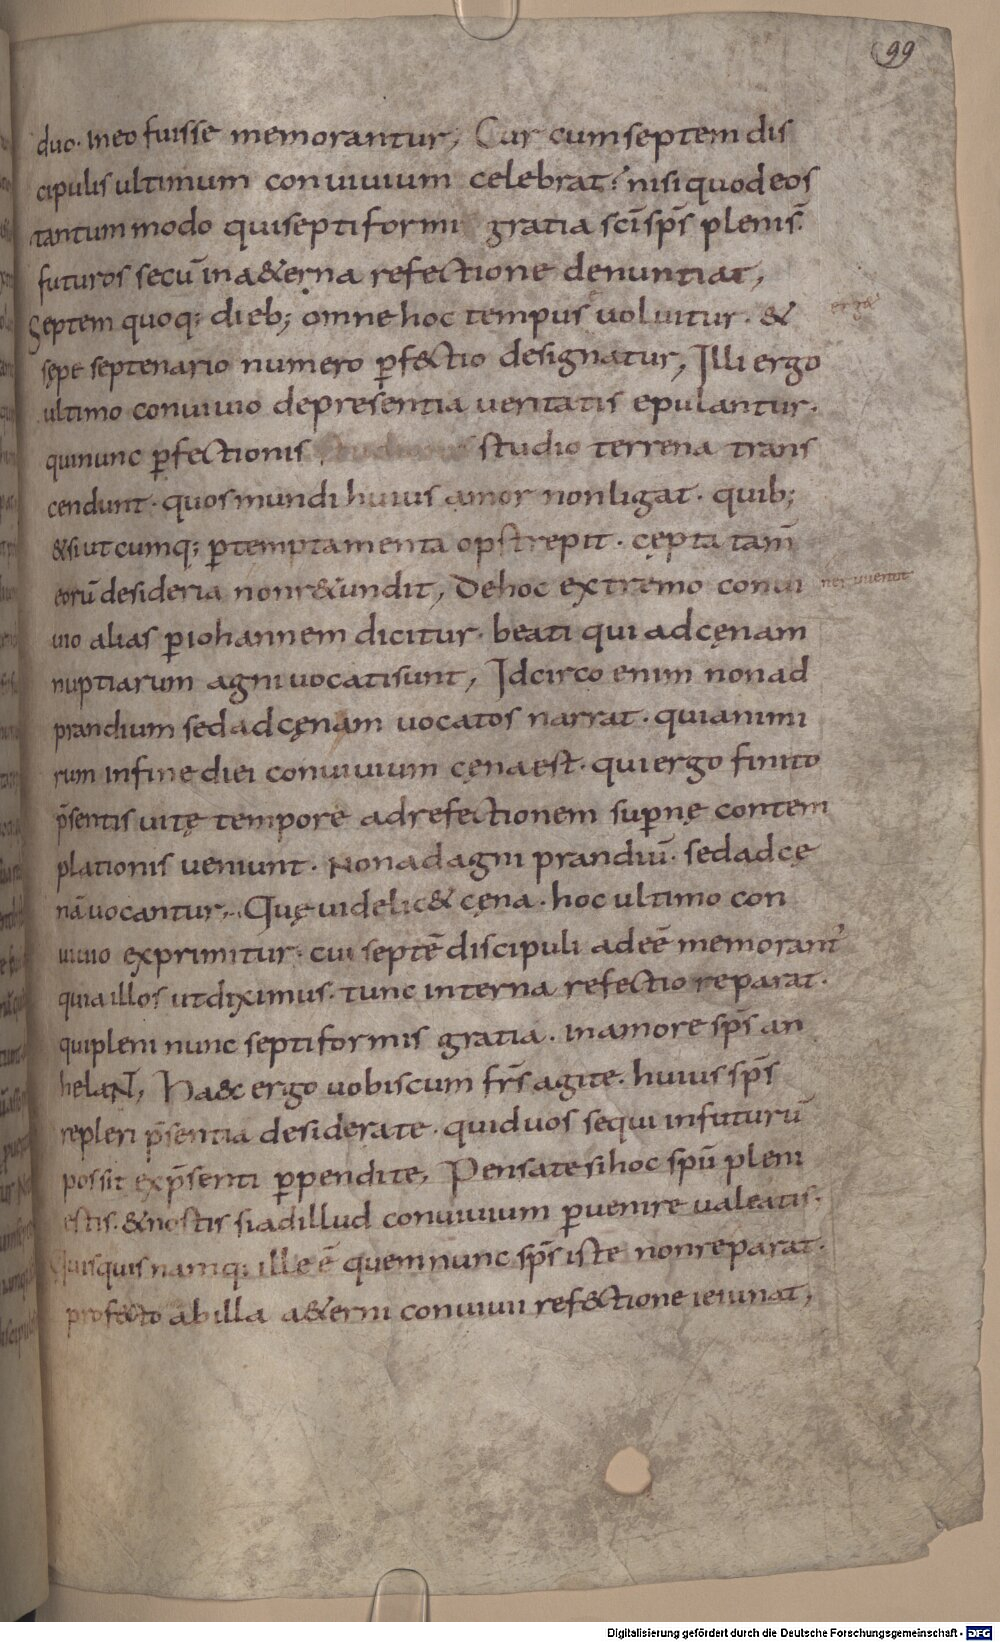 99
duo· in eo fuisse memorantur, Cur cum septem dis
cipulis ultimum conuiuium celebrat? nisi quod eos
tantum modo qui septiformi gratia scī sp̄s plenis
futuros secū in a&erna refectione denuntiat,
Septem quoq; dieb; omne hoc tempus uoluitur· &
sępe septenario numero ꝑf&ctio designatur, Illi ergo
ultimo conuiuio de presentia ueritatis epulantur·
qui nunc ꝑfectionis studio terrena trans
cendunt· quos mundi huius amor non ligat· quib;
&si utcumq; ꝑ temptamenta opstrepit· cępta tam̄
eorū desideria non r&undit, De hoc extremo conui
uio alias ꝑ iohannem dicitur· beati qui ad cęnam
nuptiarum agni uocati sunt, Idcirco enim non ad
prandium sed ad cęnam uocatos narrat· quia nimi
rum in fine diei conuiuium cęna est· qui ergo finito
p̄sentis uitę tempore ad refectionem suꝑnę contem
plationis ueniunt· Non ad agni prandiū· sed ad cę
nā uocantur, Quę uidelic& cęna· hoc ultimo con
uiuio exprimitur· cui septē discipuli adeē memorant᷑
quia illos ut diximus· tunc interna refectio reparat·
qui pleni nunc septiformis gratia· in amore sp̄s an
helaNT, Haec ergo uobiscum fr̄s agite· huius sp̄s
repleri p̄sentia desiderate· quid uos sequi in futurū
possit ex p̄senti ꝑpendite, Pensate si hoc spū pleni
estis· & nostis si ad illud conuiuium ꝑuenire ualeatis·
Quisquis namq; ille ē quem nunc sp̄s iste non reparat·
profecto ab illa a&erni conuiuii ref&ctione ieiunat,
Digitalisierung gefördert durch die Deutsche Forschungsgemeinschaft - DFG